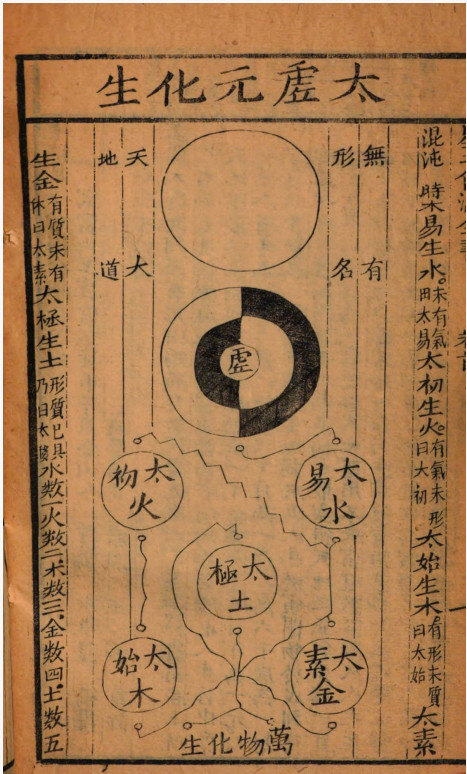 太虛元化生
混沌 時太易生水。未有氣曰太易太初生火。有氣未形曰太初太始生木。有形未質曰太始太素
無 有
形 名
天 大
地 道
虛
太易水
太初火
太極土
太素金
太始木
萬物化生
生金有質未有休曰太素太極生土形質已具乃曰太極水数一火数二木数三金数四土数五